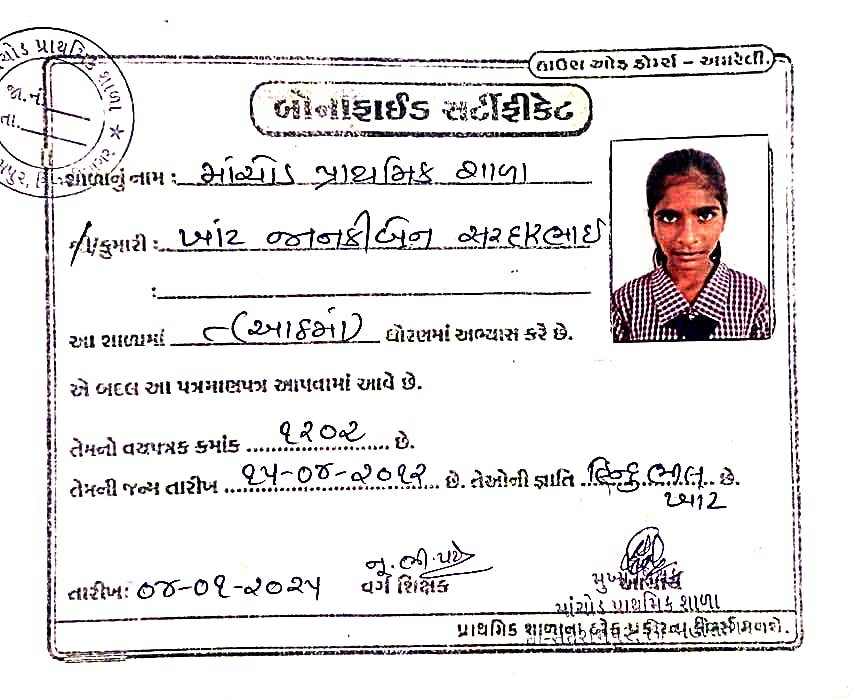 પ્રાથમિક શાળા
જા.નં.
તા.
હાઉસ ઓફ ફોર્મ્સ - અમરેલી.
બોનાફાઈડ સર્ટીફીકેટ
શાળાનું નામ : માંચોડ પ્રાથમિક શાળા
કુમારી : ખાંટ જાનકીબેન સરદારભાઈ
:
આ શાળામાં ૮ (આઠમાં) ધોરણમાં અભ્યાસ કરે છે.
એ બદલ આ પત્રમાણપત્ર આપવામાં આવે છે.
તેમનો વયપત્રક ક્રમાંક ૧૨૦૨ છે.
તેમની જન્મ તારીખ ૧૫-૦૪-૨૦૧૨ છે. તેઓની જ્ઞાતિ હિન્દુ ભીલ છે.
ખાંટ
તારીખ: ૦૪-૦૧-૨૦૨૫ વર્ગ શિક્ષક
માંચોડ પ્રાથમિક શાળા
પ્રાથમિક શાળાના મળશે.